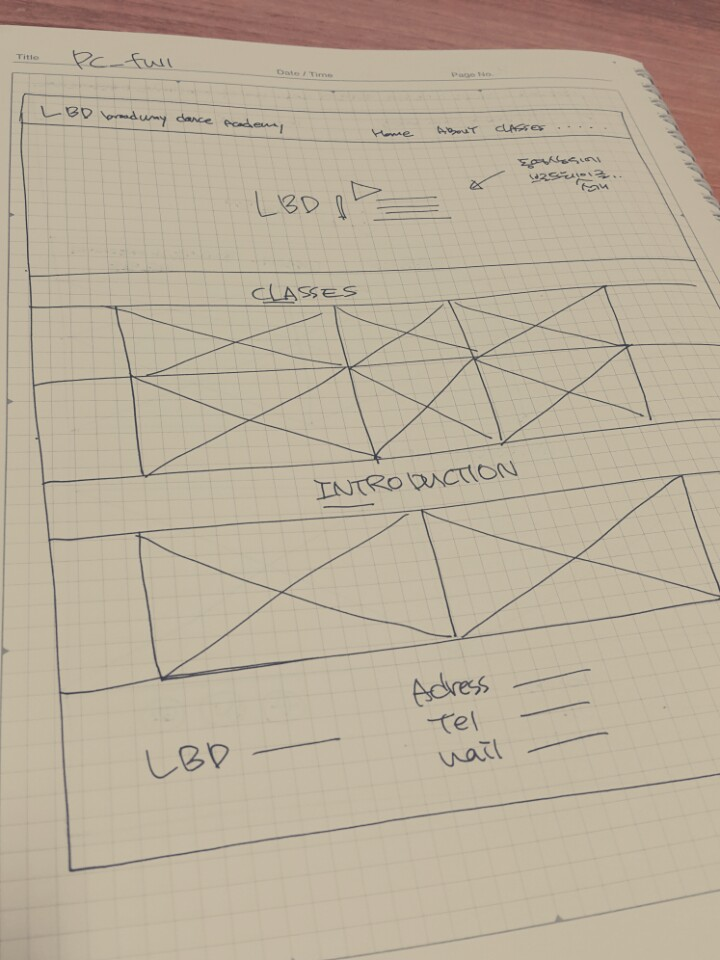 Title PC_full
Date / Time
Page No.
LBD broadway dance Academy
Home ABOUT CLASSES .....
LBD
CLASSES
INTRODUCTION
Adress
Tel
mail
LBD